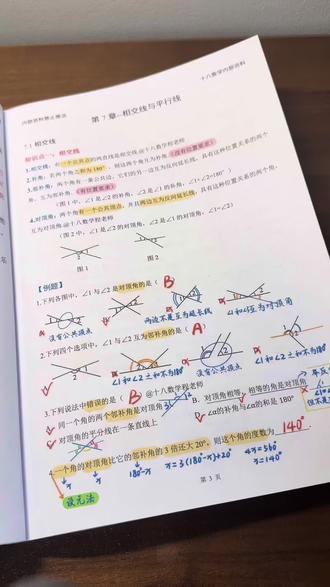 内部资料禁止搬运
十八数学内部资料
第 7 章—相交线与平行线
7.1 相交线
知识点一：相交线
1.相交线：有一个公共点的两直线是相交线@十八数学程老师
2.补角：若两个角之和为 180°，则这两个角互为补角.(没有位置要求)
3.邻补角：两个角有一条公共边，它们的另一边互为反向延长线，具有这种位置关系的两个
角，互为邻补角.(有位置要求)
(图 1 中，∠1 是∠2 的补角，∠2 是∠1 的补角，∠1+∠2=180°)
4.对顶角：两个角有一个公共顶点，并且两边互为反向延长线，具有这种位置关系的两个角，
互为对顶角.@十八数学程老师
(图 2 中，∠1 是∠2 的对顶角，∠2 是∠1 的对顶角，∠1=∠2)
图 1
图 2
【例题】
1.下列各图中，∠1 与∠2 是对顶角的是( B
没有公共顶点
两边不是互为延长线
∠1和∠3互为对顶角
2.下列四个选项中，∠1 与∠2 互为邻补角的是( A )
∠1和∠2之和不为180°
没有公共顶点
∠1和∠2之和不为180°
3.下列说法中错误的是( B @十八数学程老师
同一个角的两个邻补角是对顶角
B. 对顶角相等，相等的角是对顶角
对顶角的平分线在一条直线上
D. ∠α的补角与∠α的和是 180°
4.一个角的对顶角比它的邻补角的 3 倍还大 20°，则这个角的度数为 140°
x
x
180°-x
x=3(180°-x)+20°
4x=560°
x=140°
设元法
第 3 页